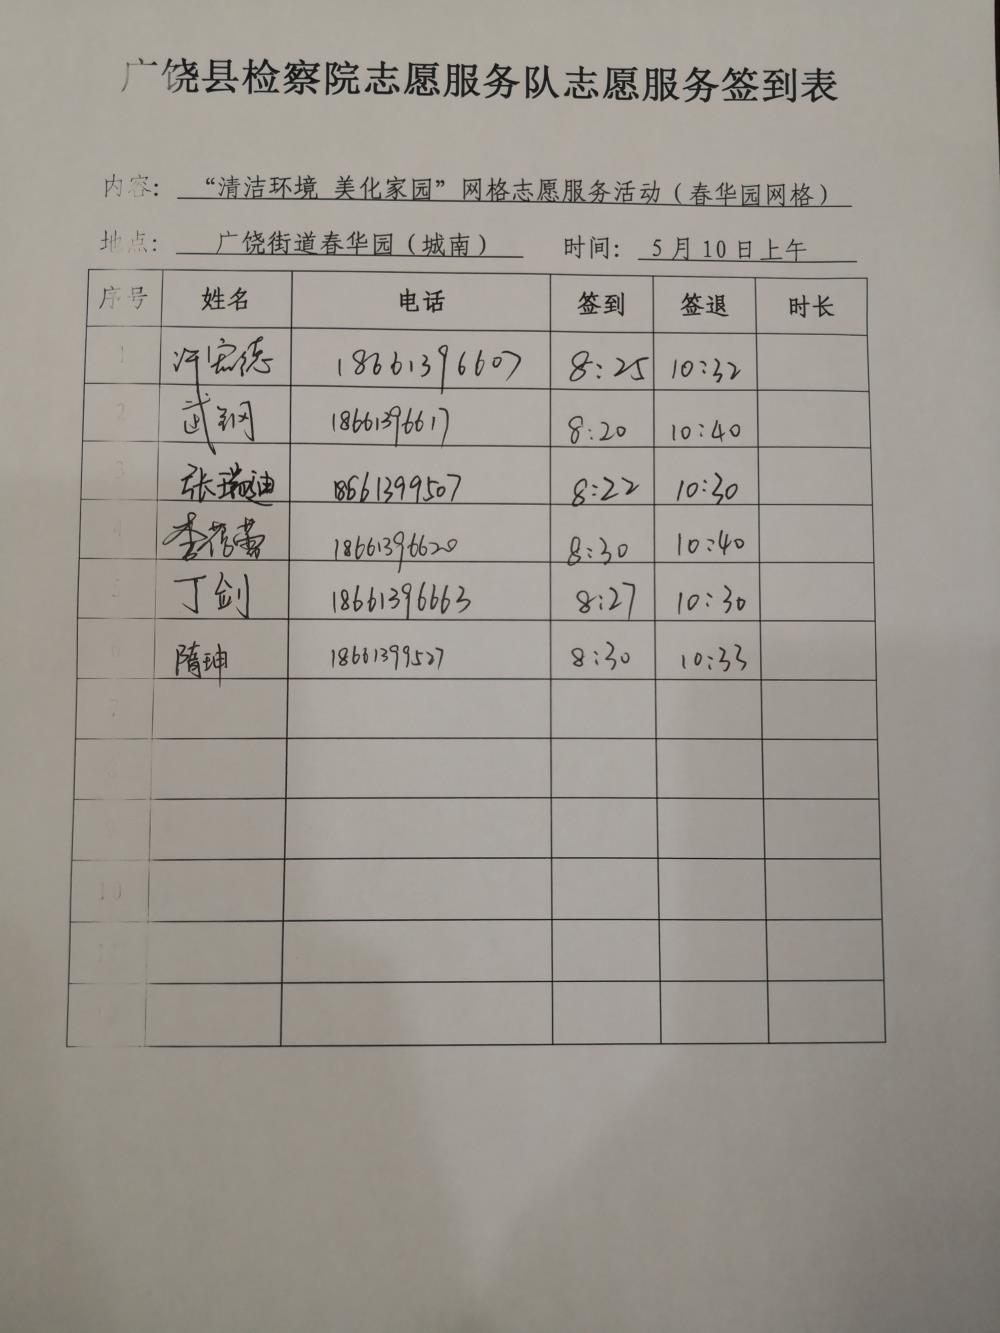 广饶县检察院志愿服务队志愿服务签到表
内容: “清洁环境 美化家园”网格志愿服务活动(春华园网格)
地点: 广饶街道春华园(城南) 时间: 5月10日上午
序号 姓名 电话 签到 签退 时长
1 许宏德 18661396607 8:25 10:32
2 武钢 18661396617 8:20 10:40
3 张瑞迪 18661399507 8:22 10:30
4 李蕾 18661396620 8:30 10:40
5 丁剑 18661396663 8:27 10:30
6 隋珅 18661399527 8:30 10:33
7
8
9
10
11
12